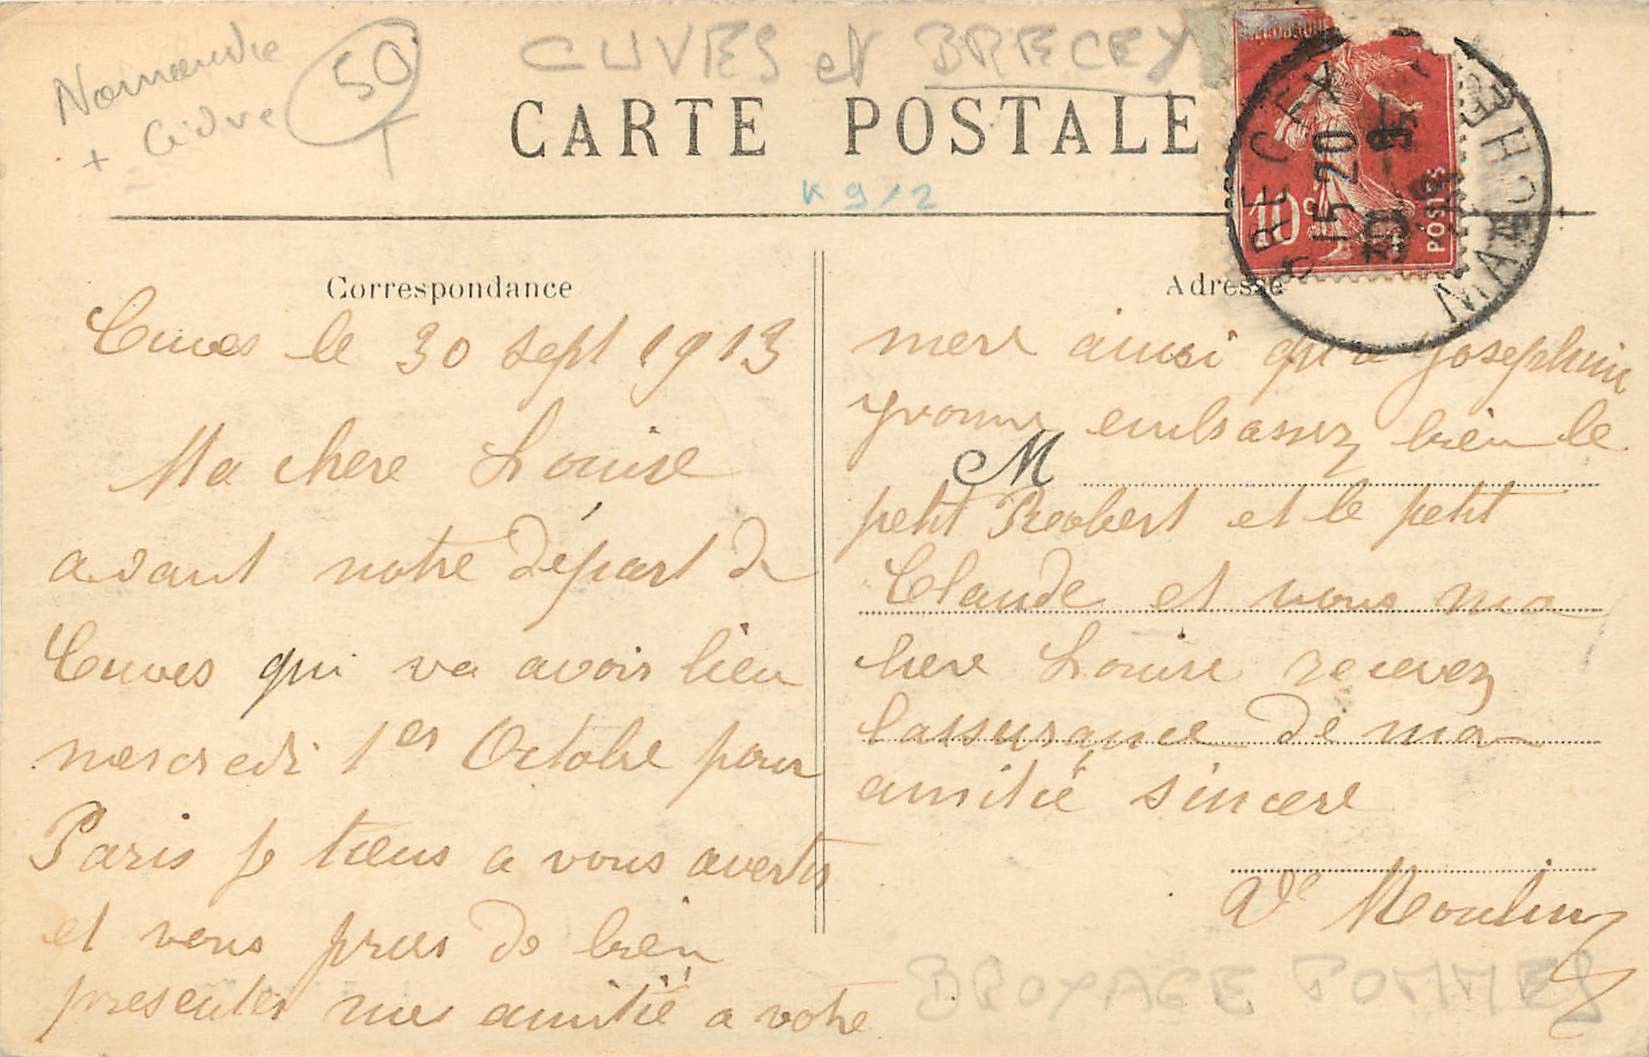 Normandie
+ Cidre
50
CUVES et BRECEY
CARTE POSTALE
K 9/2
BRECEY
MANCHE
15 20
30 - 9
10c
POSTES
Correspondance
Cuves le 30 sept 1913
Ma chere Louise
avant notre départ de
Cuves qui va avoir lieu
mercredi 1er Octobre pour
Paris je tiens a vous avertir
et vous prier de bien
presenter mes amitié a votre
Adresse
mere ainsi qu'a Josephine
yvonne embrassez bien le
M
petit Robert et le petit
Claude et vous ma
chere Louise recevez
lassurance de ma
amitié sincere
Moulin
BROYAGE POMMES